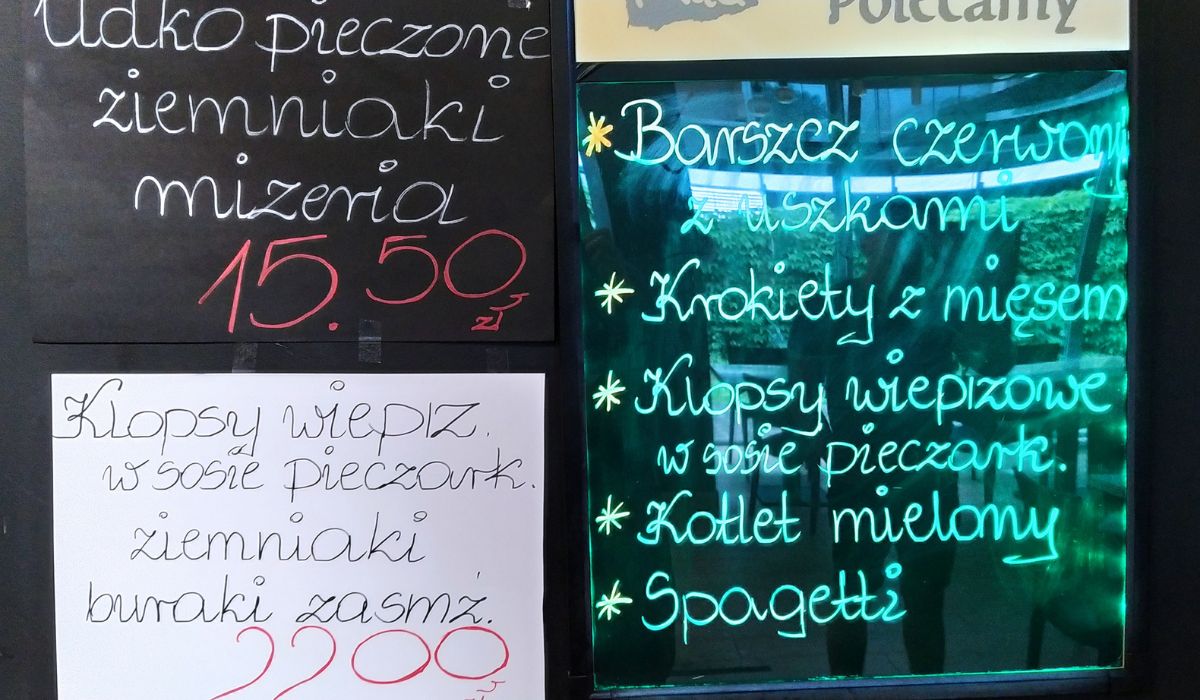 Udko pieczone
ziemniaki
mizeria
15.50
zł
Klopsy wieprz.
w sosie pieczark.
ziemniaki
buraki zasmż.
22 00
zł
Polecamy
* Barszcz czerwony
z uszkami
* Krokiety z mięsem
* Klopsy wieprzowe
w sosie pieczark.
* Kotlet mielony
* Spagetti